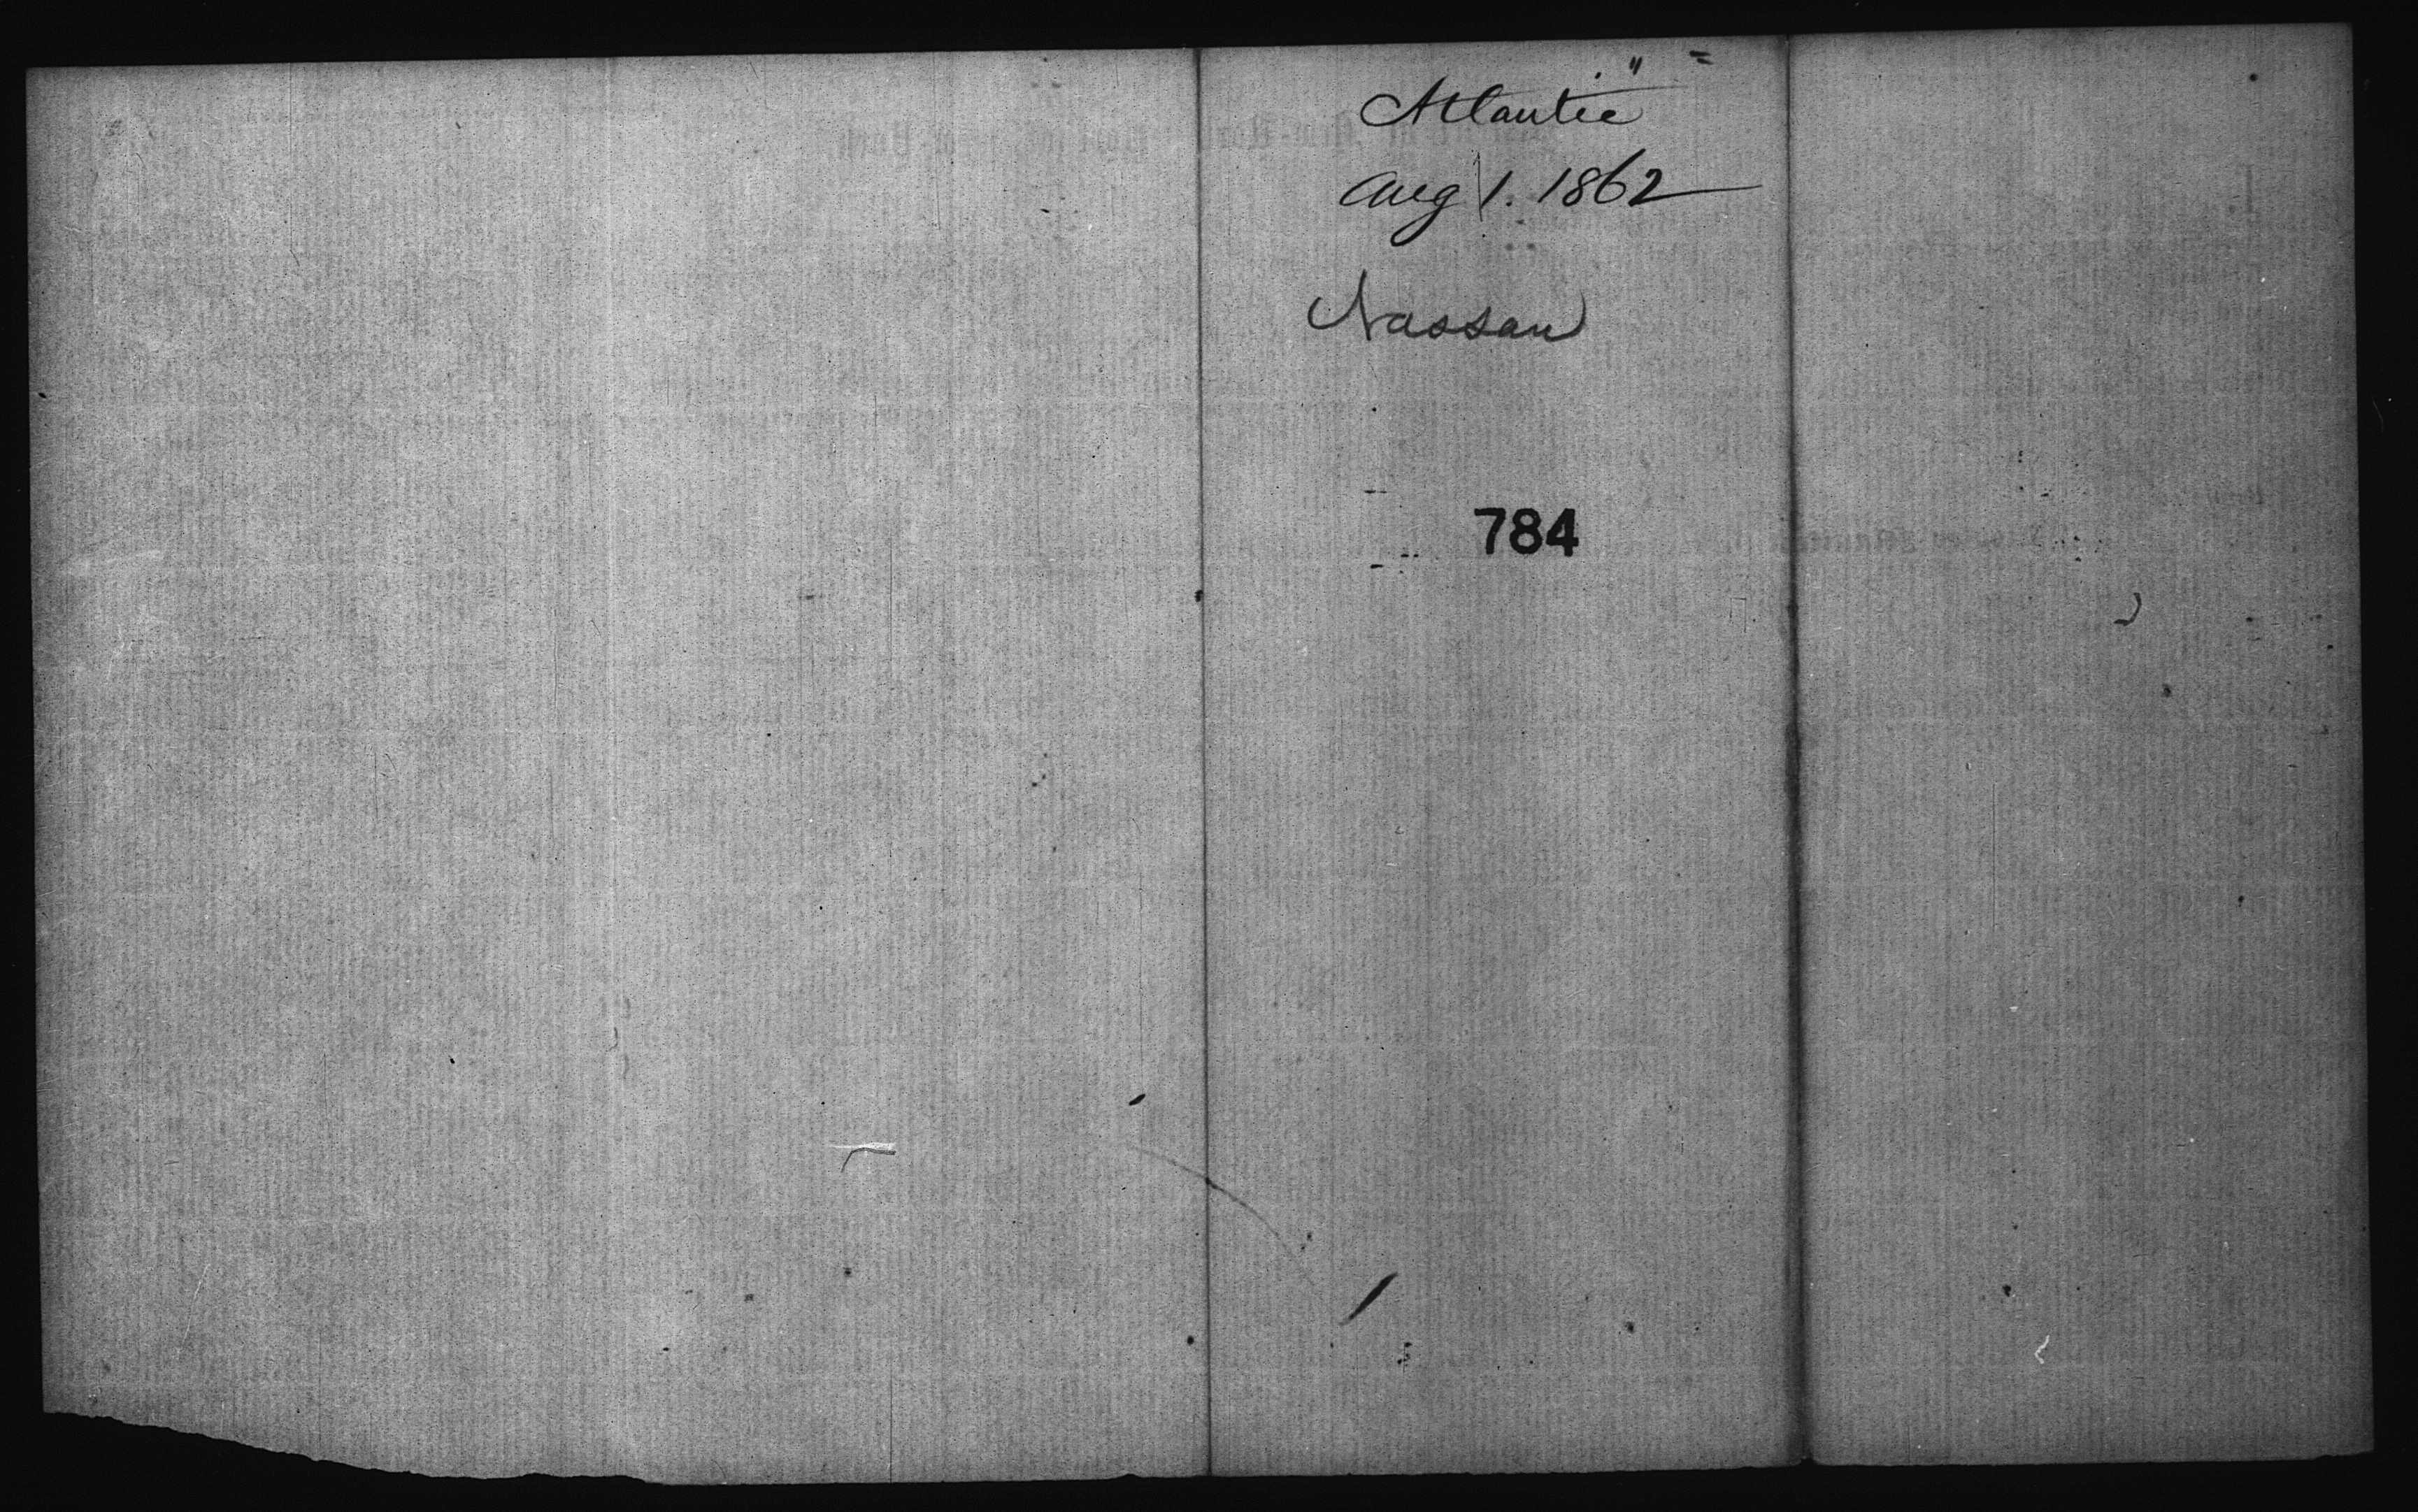 Atlantic"
Aug 1. 1862
Nassau
784